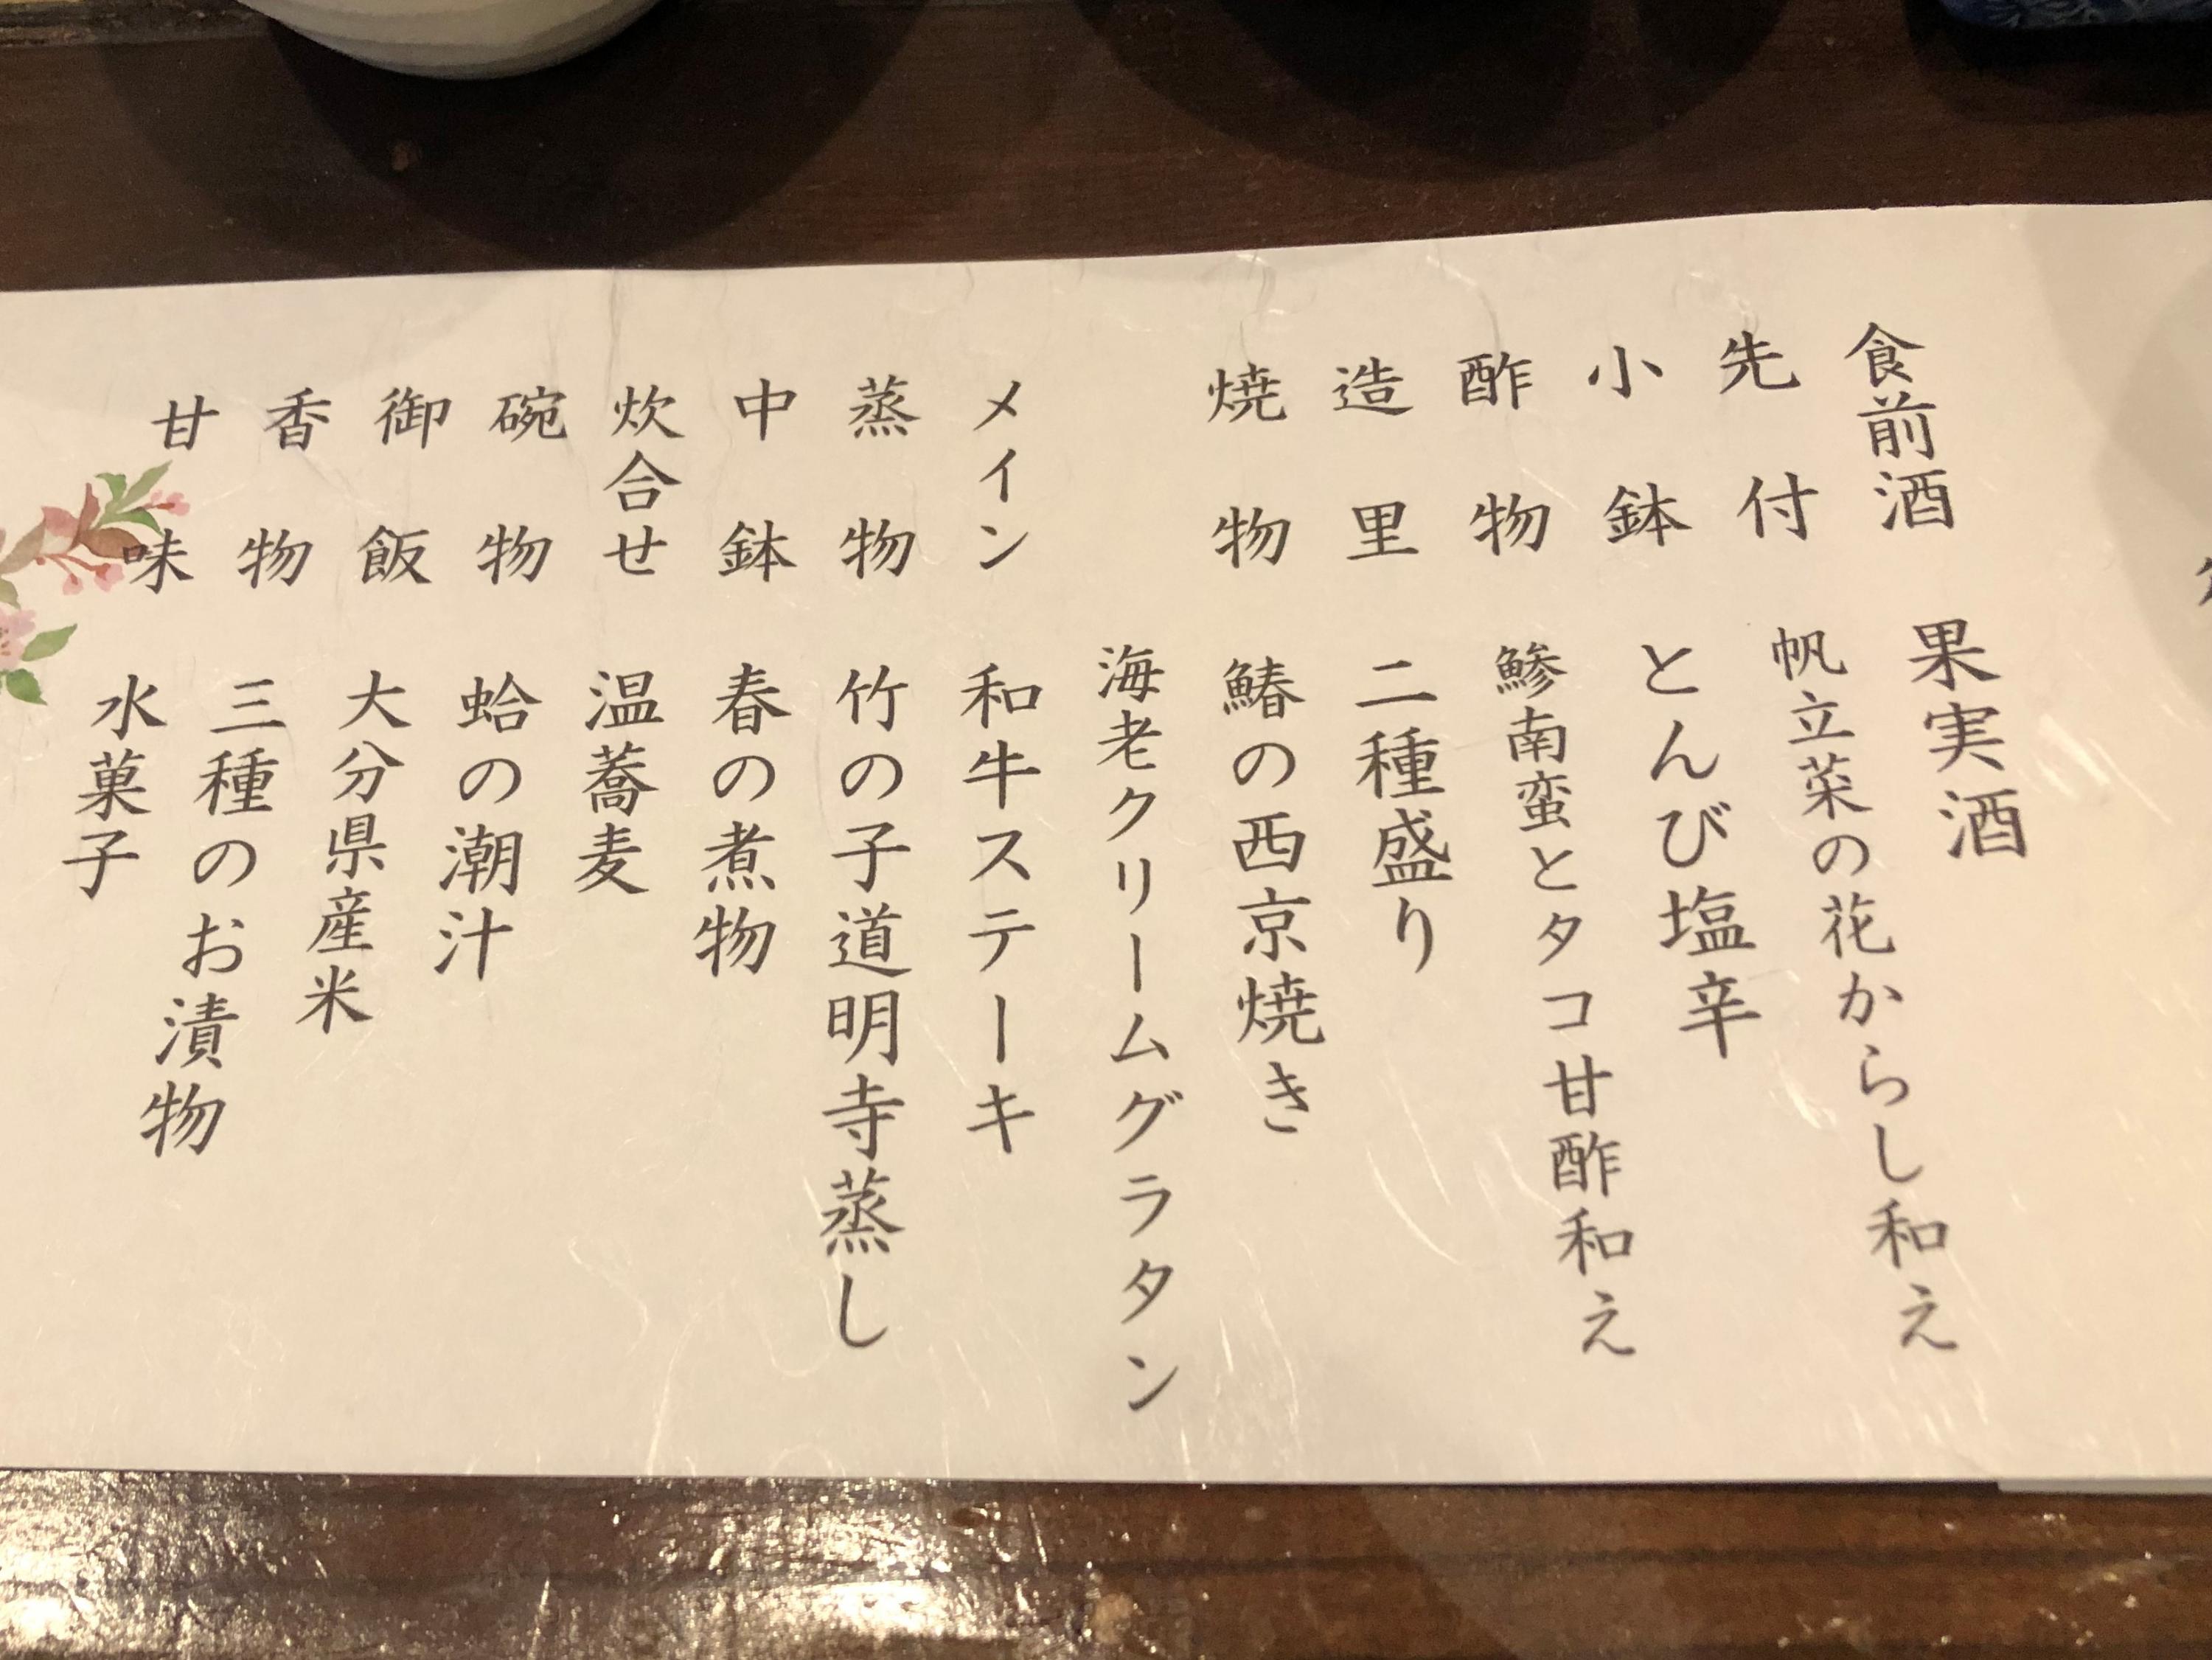 食前酒 果実酒
先付 帆立菜の花からし和え
小鉢 とんび塩辛
酢物 鯵南蛮とタコ甘酢和え
造里 二種盛り
焼物 鰆の西京焼き
海老クリームグラタン
メイン 和牛ステーキ
蒸物 竹の子道明寺蒸し
中鉢 春の煮物
炊合せ 温蕎麦
碗物 蛤の潮汁
御飯 大分県産米
香物 三種のお漬物
甘味 水菓子